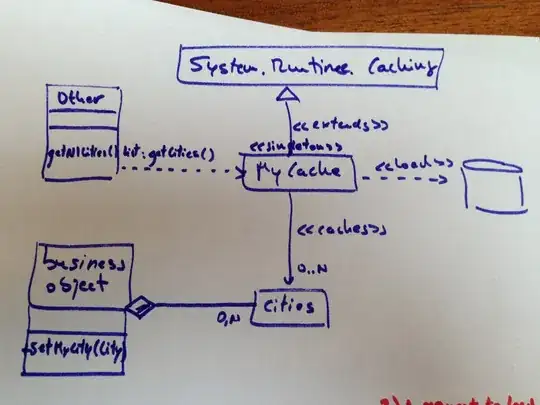 System.Runtime.Caching
Other
<<extends>>
<<singleton>>
getNlCities()
list:getCities()
MyCache
<<load>>
<<caches>>
0..N
business
object
0,N
cities
setMyCity(City)